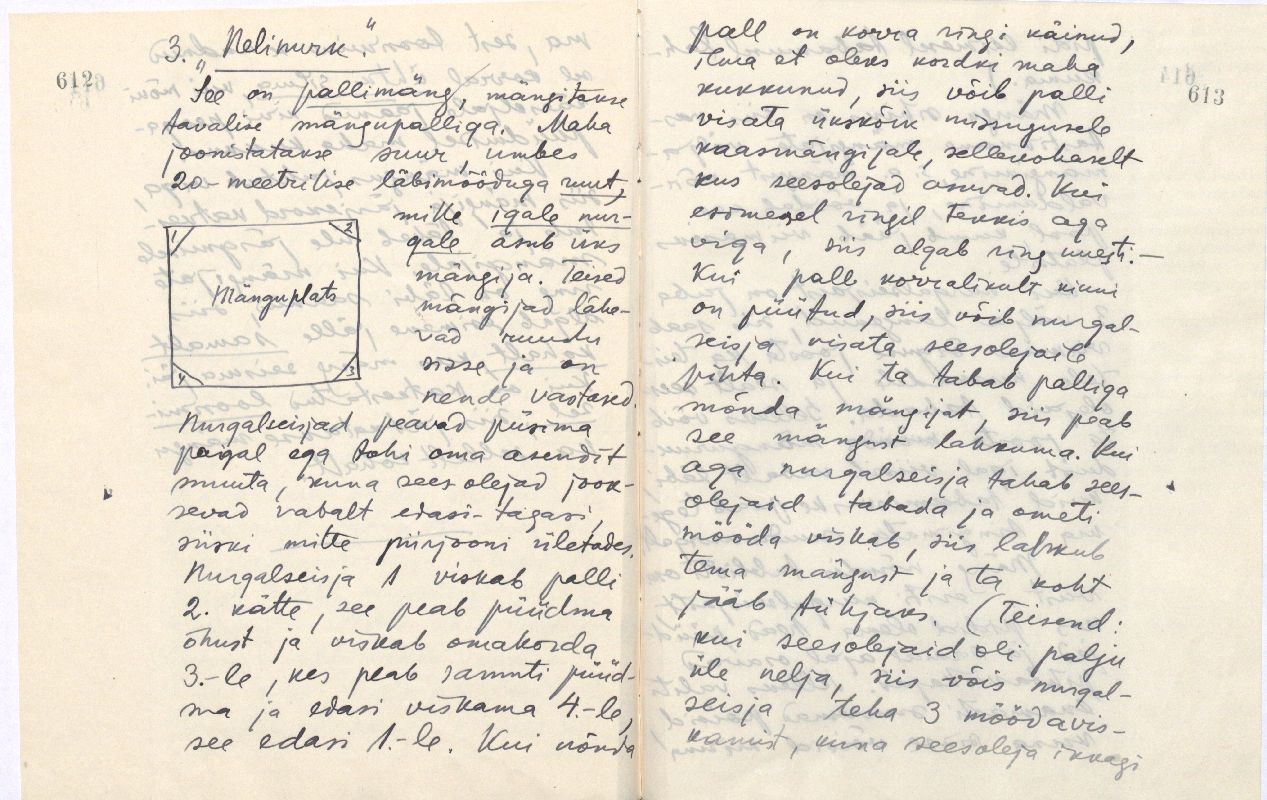 612
3. „Nelinurk."
See on pallimäng, mängitakse
tavalise mängupalliga. Maha
joonistatakse suur, umbes
20-meetrilise läbimõõduga ruut,
mille igale nur-
gale asub üks
mängija. Teised
mängijad lähe-
vad ruudu
sisse ja on
nende vastased.
1
2
Mänguplats
4
3
Nurgalseisjad peavad püsima
paigal ega tohi oma asendit
muuta, kuna seesolejad jook-
sevad vabalt edasi-tagasi,
siiski mitte piirjooni ületades.
Nurgalseisja 1 viskab palli
2. kätte, see peab püüdma
õhust ja viskab omakorda
3.-le, kes peab samuti püüd-
ma ja edasi viskama 4.-le,
see edasi 1.-le. Kui nõnda
613
pall on korra ringi käinud,
ilma et oleks kordki maha
kukkunud, siis võib palli
visata ükskõik missugusele
kaasmängijale, sellekohaselt
kus seesolejad asuvad. Kui
esimesel ringil tekkis aga
viga, siis algab ring uuesti. —
Kui pall korralikult kinni
on püütud, siis võib nurgal-
seisja visata seesolejaile
pihta. Kui ta tabab palliga
mõnda mängijat, siis peab
see mängust lahkuma. Kui
aga nurgalseisja tahab sees-
olejaid tabada ja ometi
mööda viskab, siis lahkub
tema mängust ja ta koht
jääb tühjaks. (Teisend:
kui seesolejaid oli palju
üle nelja, siis võis nurgal-
seisja teha 3 möödavis-
kamist, kuna seesoleja ikkagi